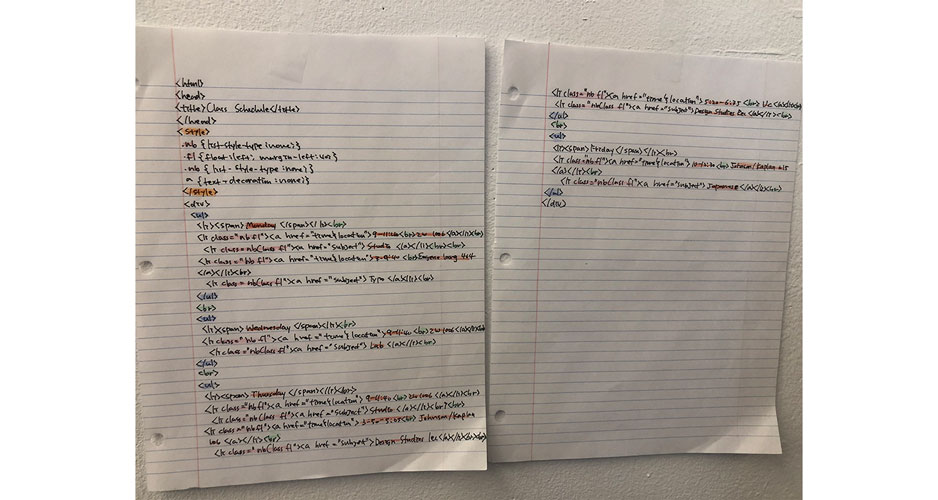 <html>
<head>
<title>Class Schedule</title>
</head>
<style>
.nb {list-style-type:none;}
.fl {float:left; margin-left:
.nb {list-style-type:none;}
a {text-decoration:none;}
</style>
<div>
<ul>
<li><span> Monday </span></li><br>
<li class="nb fl"><a href="time&location"> <br> </a></li><br>
<li class="nbClass fl"><a href="subject"> Studio </a></li><br><br>
<li class="nb fl"><a href="time&location"> <br> Lang
</a></li><br>
<li class="nbClass fl"><a href="subject"> Typo </a></li><br>
</ul>
<br>
<ul>
<li><span> Wednesday </span></li><br>
<li class="nb fl"><a href="time&location"> <br> </a></li><br>
<li class="nbClass fl"><a href="subject"> Lab </a></li><br>
</ul>
<br>
<ul>
<li><span> Thursday </span></li><br>
<li class="nb fl"><a href="time&location"> <br> </a></li><br>
<li class="nbClass fl"><a href="subject"> Studio </a></li><br><br>
<li class="nb fl"><a href="time&location"> <br> Johnson/Kaplan
</a></li><br>
<li class="nbClass fl"><a href="subject"> Design Studies </a></li><br><br>
<li class="nb fl"><a href="time&location"> <br>
<li class="nbClass fl"><a href="subject"> Design Studies Rec </a></li><br>
</ul>
<br>
<ul>
<li><span> Friday </span></li><br>
<li class="nb fl"><a href="time&location"> <br> Johnson/Kaplan
</a></li><br>
<li class="nbClass fl"><a href="subject"> Japanese </a></li><br>
</ul>
</div>